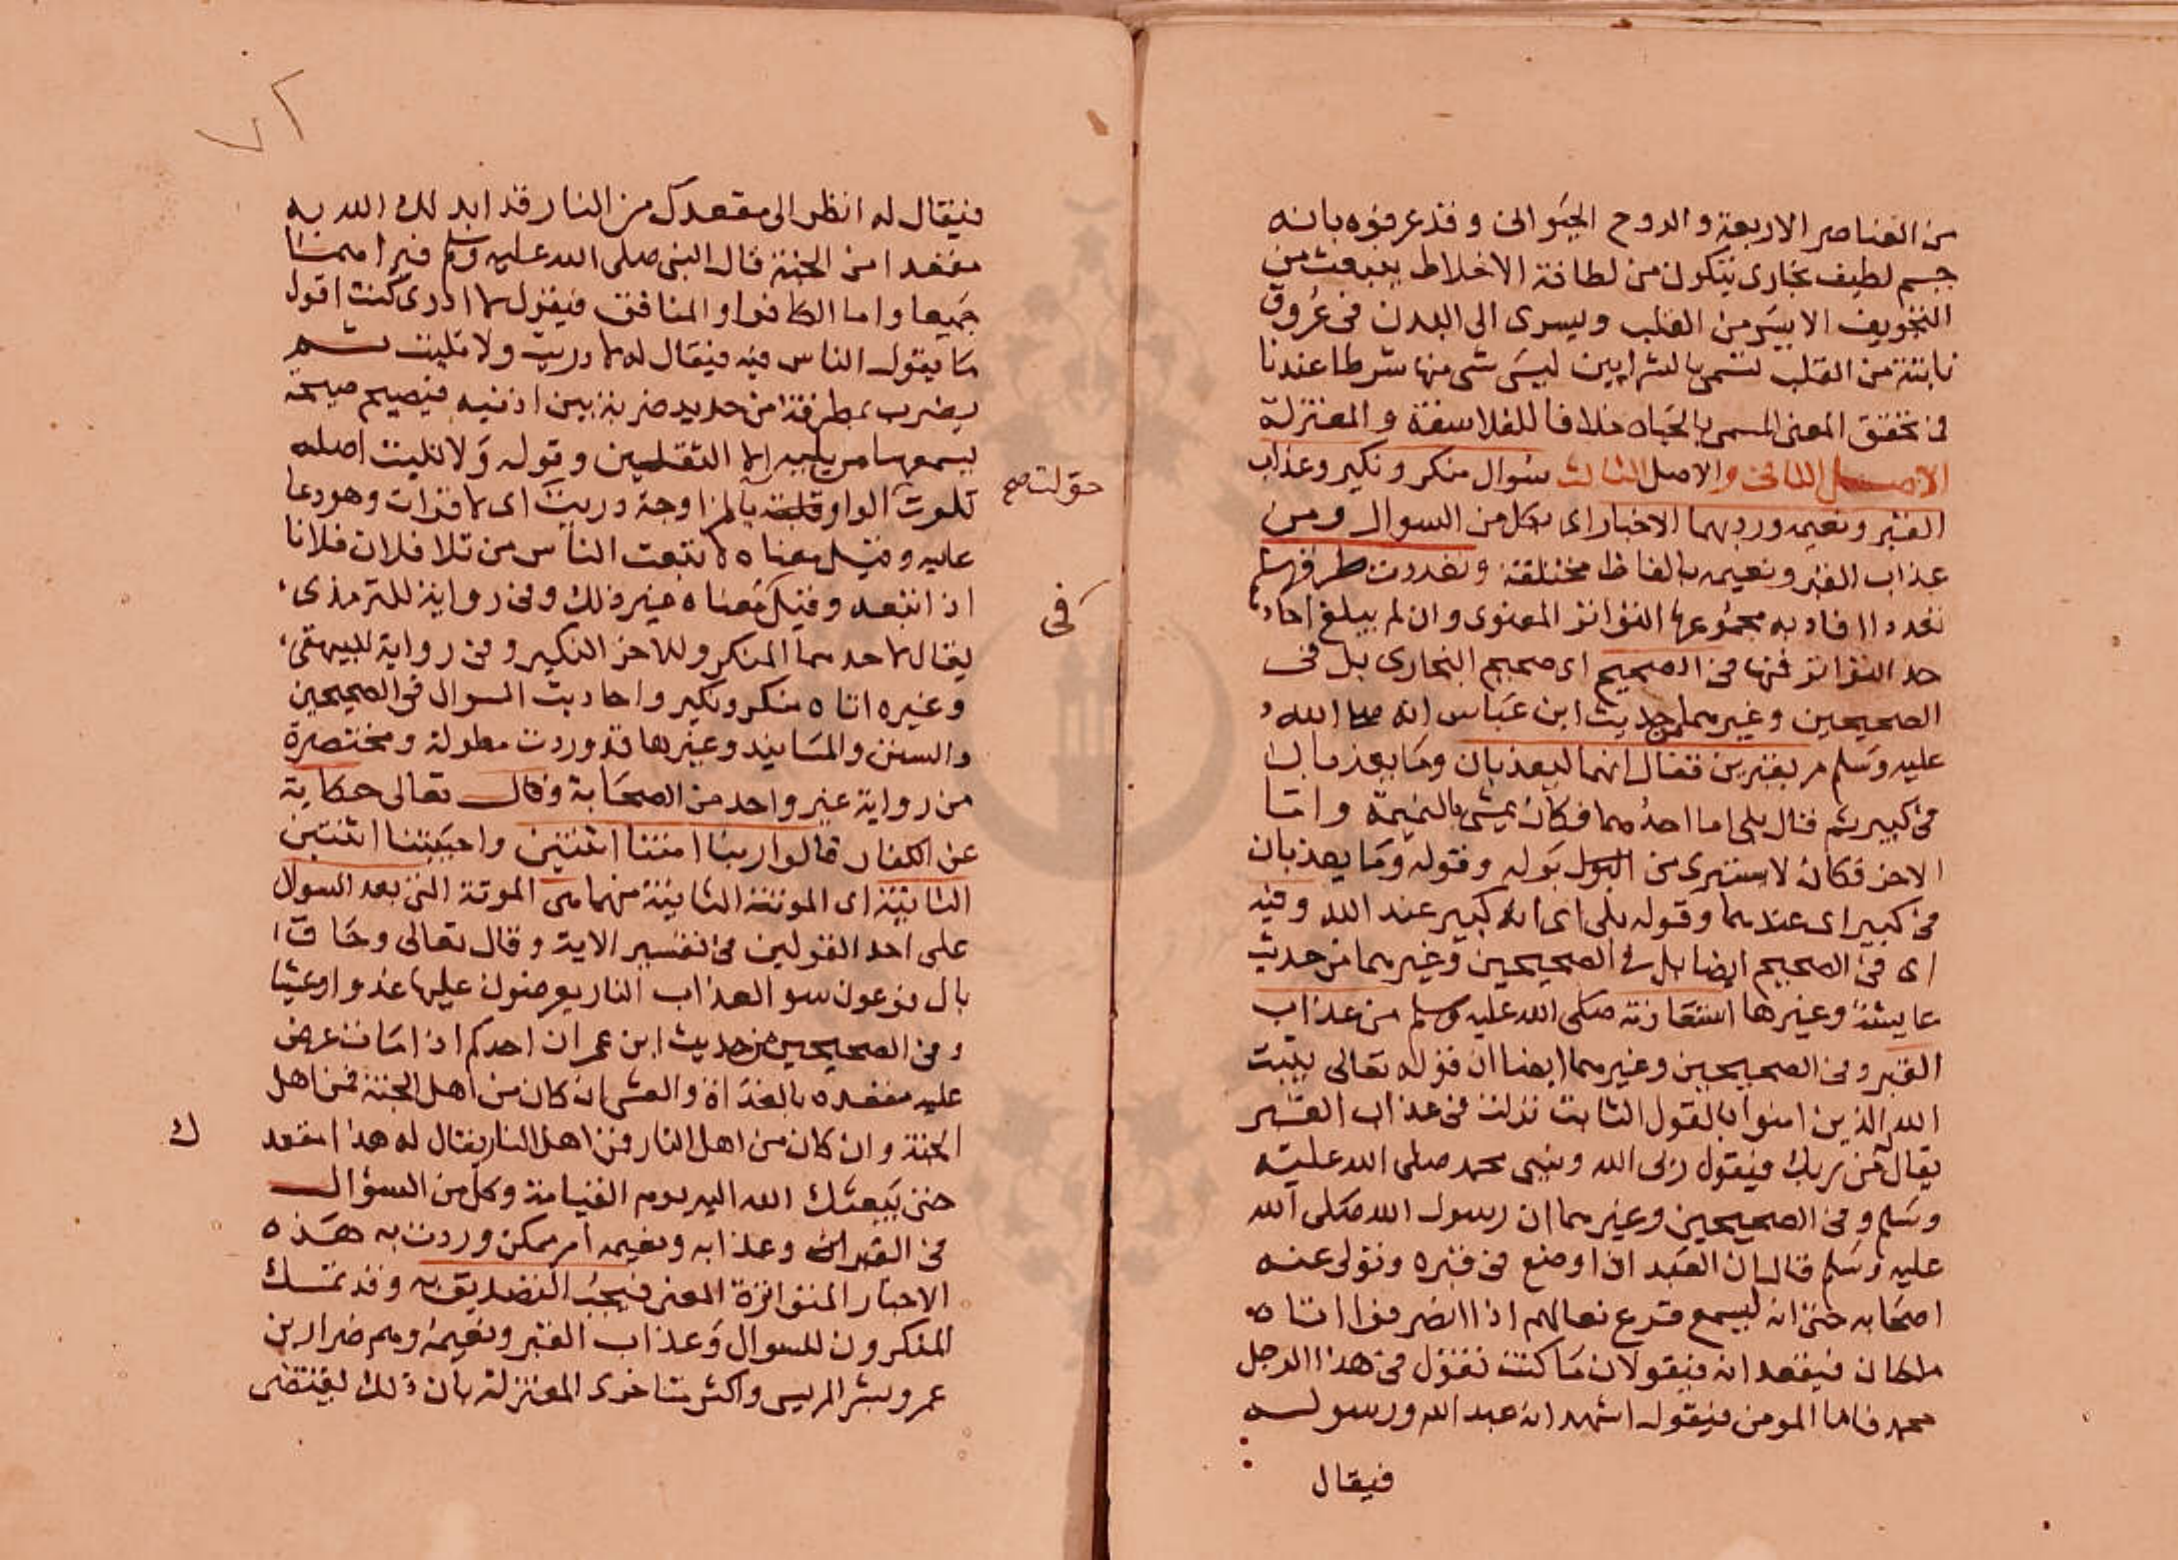 من العناصر الاربعة والروح الحيوانى وقد عرفوه بانه
جسم لطيف بخارى يتكون من لطافة الاخلاط ينبعث من
التجويف الايسر من القلب ويسرى الى البدن فى عروق
نابتة من القلب تسمى بالشرايين ليس شى منها شرطا عندنا
فى تحقق المعنى المسمى بالحياه خلافا للفلاسفة والمعتزلة
الاصل الثانى والاصل الثالث سوال منكر ونكير وعذاب
القبر ونعيمه ورد بهما الاخبار اى بكل من السوال ومن
عذاب القبر ونعيمه بالفاظ مختلفة وتعددت طرقها
تعددا افاد به مجموعها التواتر المعنوى وان لم يبلغ احادها
حد التواتر فمنها فى الصحيح اى صحيح البخارى بل فى
الصحيحين وغيرهما من حديث ابن عباس انه صلى الله
عليه وسلم مر بقبرين فقال انهما ليعذبان وما يعذبان
فى كبير ثم قال بلى اما احدهما فكان يمشى بالنميمة واما
الاخر فكان لا يستبرى من بوله وقوله وما يعذبان
فى كبير اى عندهما وقوله بلى اى انه كبير عند الله وفيه
اى فى الصحيح ايضا بل فى الصحيحين وغيرهما من حديث
عايشة وغيرها استعاذته صلى الله عليه وسلم من عذاب
القبر وفى الصحيحين وغيرهما ايضا ان قوله تعالى يثبت
الله الذين امنوا بالقول الثابت نزلت فى عذاب القبر
يقال من ربك فيقول ربى الله ونبيى محمد صلى الله عليه
وسلم وفى الصحيحين وغيرهما ان رسول الله صلى الله
عليه وسلم قال ان العبد اذا وضع فى قبره وتولى عنه
اصحابه حتى انه ليسمع قرع نعالهم اذا انصرفوا اتاه
ملكان فيقعدانه فيقولان ما كنت تقول فى هذا الرجل
محمد فاما المومن فيقول اشهد انه عبد الله ورسوله
فيقال
٧٢
فيقال له انظر الى مقعدك من النار قد ابدلك الله به
مقعدا من الجنة قال النبى صلى الله عليه وسلم فيراهما
جميعا واما الكافر او المنافق فيقول لا ادرى كنت اقول
ما يقول الناس فيه فيقال له لا دريت ولا تليت ثم
يضرب بمطرقة من حديد ضربة بين اذنيه فيصيح صيحة
يسمعها من يليه الا الثقلين وقوله ولا تليت اصله
تلوت الواو بالمزاوجة دريت اى لا قرات وهو دعا
عليه وقيل معناه لا تبعت الناس من تلا فلان فلانا
اذا اتبعه وقيل معناه غير ذلك وفى رواية للترمذى
يقال لاحدهما المنكر وللاخر النكير وفى رواية للبيهقى
وغيره اتاه منكر ونكير واحاديث السوال فى الصحيحين
والسنن والمسانيد وغيرها قد وردت مطولة ومختصرة
من رواية غير واحد من الصحابة وقال تعالى حكاية
عن الكفار قالوا ربنا امتنا اثنتين واحييتنا اثنتين
الثانية اى الموتة الثانية منهما هى الموتة التى بعد السوال
على احد القولين فى تفسير الاية وقال تعالى وحاق
بال فرعون سو العذاب النار يعرضون عليها غدوا وعشيا
وفى الصحيحين من حديث ابن عمر ان احدكم اذا مات عرض
عليه مقعده بالغداة والعشى ان كان من اهل الجنة فمن اهل
الجنة وان كان من اهل النار فمن اهل النار يقال له هذا مقعد
حتى يبعثك الله اليه يوم القيامة وكل من السؤال
فى القبر وعذابه ونعيمه امر ممكن وردت به هذه
الاخبار المتواترة المعنى فيجب التصديق به وقد تمسك
المنكرون للسوال وعذاب القبر ونعيمه وهم ضرار بن
عمرو وبشر المريسى واكثر متاخرى المعتزلة بان ذلك يقتضى
حولت صح
فى
ك